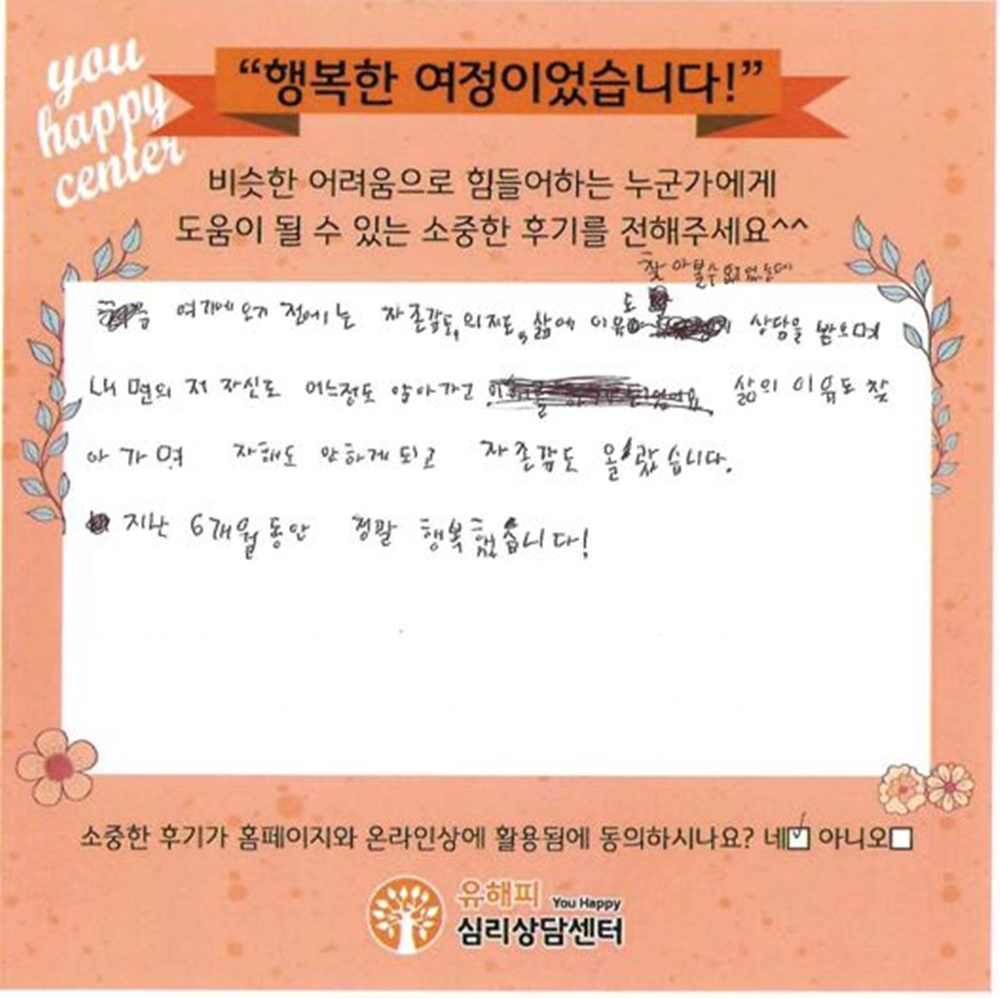 you
happy
center
“행복한 여정이었습니다!”
비슷한 어려움으로 힘들어하는 누군가에게
도움이 될 수 있는 소중한 후기를 전해주세요^^
찾아볼수 없었는데
여기에 오기 전에는 자존감도, 의지도, 삶에 이유도 상담을 받으며
내 면의 저 자신도 어느정도 알아가고 삶의 이유도 찾
아가며 자해도 안하게되고 자존감도 올랐습니다.
지난 6개월동안 정말 행복했습니다!
소중한 후기가 홈페이지와 온라인상에 활용됨에 동의하시나요? 네☑ 아니오☐
유해피 You Happy
심리상담센터